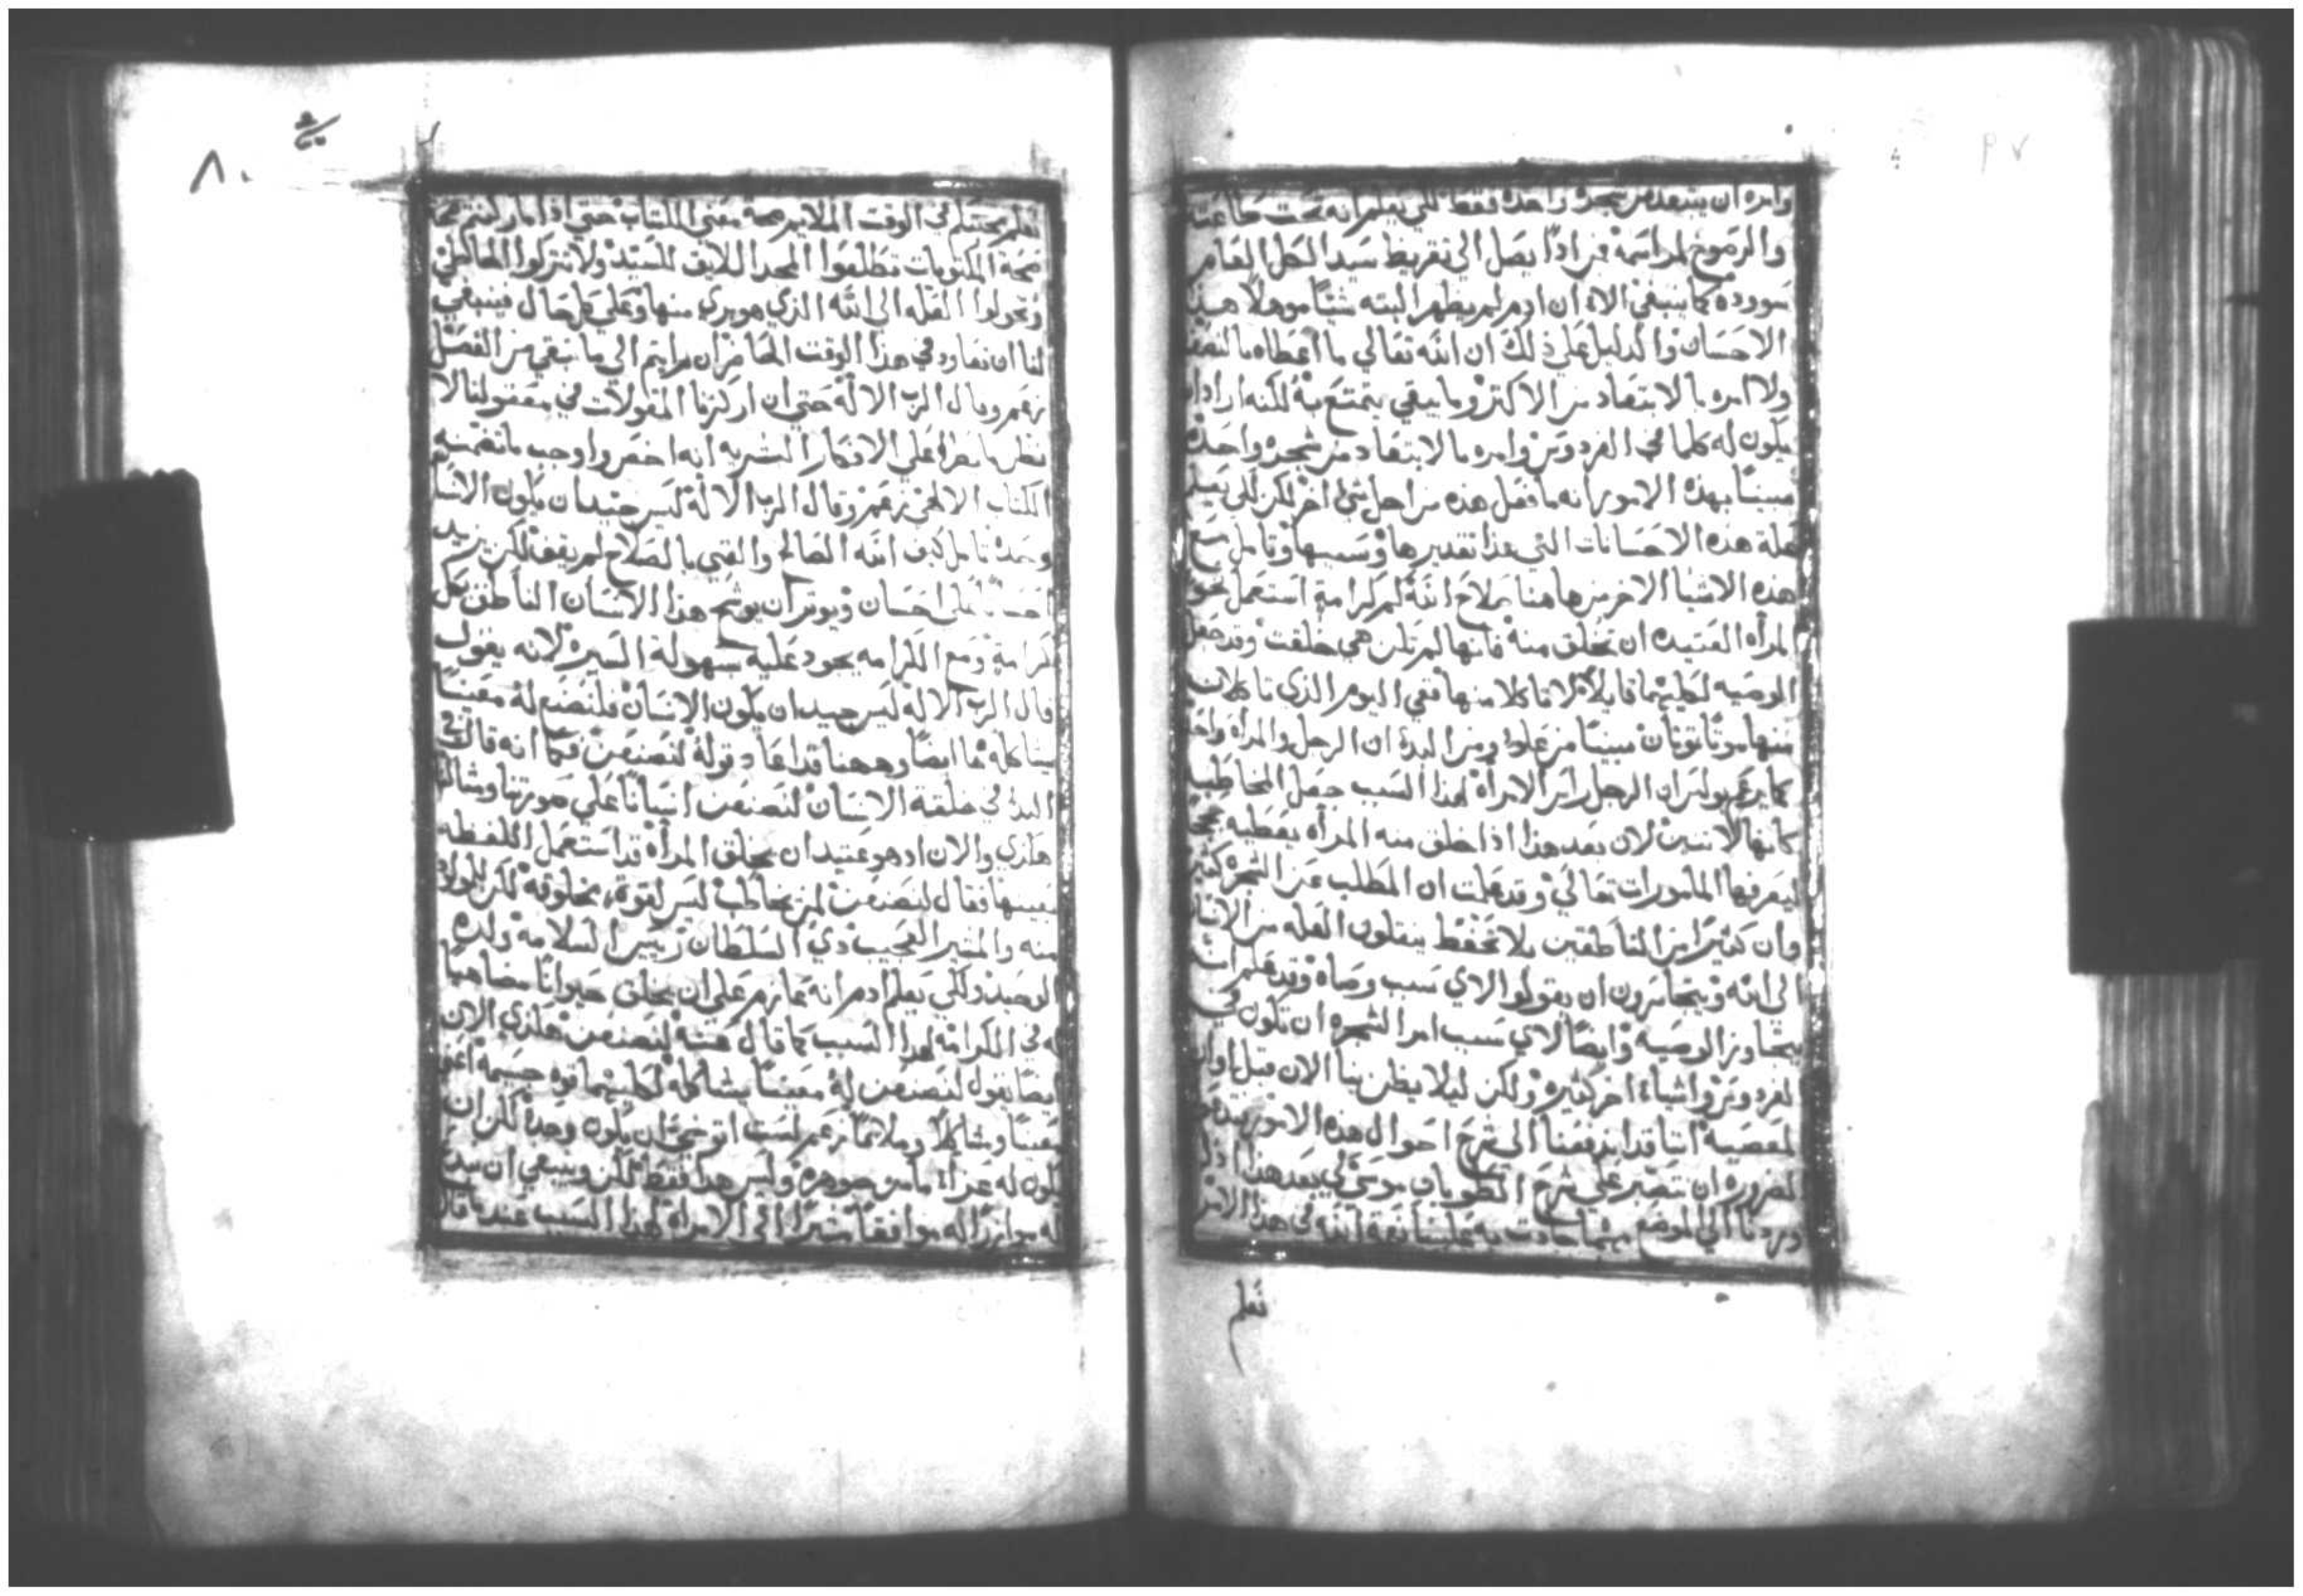 وامره ان يبتعد من شجرة واحدة فقط لكي يعلم انه تحت طاعته
والرضوخ لمراسمه فمن اذًا يصل الي تقريظ سيد الكل الغامر
جوده كما ينبغي الا ان ادم لم يظهر البته شيئًا موهلًا هذا
الاحسان والدليل علي ذلك ان الله تعالي ما اعطاه بالنصف
ولا امره بالابتعاد من الاكثر وما يبقي يتمتع به لكنه اراد ان
يكون له كلما في الفردوس وامره بالابتعاد من شجرة واحدة
مبينًا بهذه الامور انه ما فعل هذه من اجل شي اخر لكن لكي يعلم
علة هذه الاحسانات التي هذا تقديرها وسببها وتامل مع
هذه الاشيا الاخر من هاهنا صلاح الله كم كرامة استعمل نحو
المرأه العتيده ان تخلق منه فانها لم تكن هي خلقت وقد جعل
الوصيه لكليهما قايلًا لا تاكلا منها ففي اليوم الذي تاكلان
منها موتًا تموتان مبينًا من علوا ومن البدء ان الرجل والمرأه واحد
كما يزعم بولس ان الرجل راس الامرأه لهذا السبب جعل المخاطبه
كانها لاثنين لان بعد هذا اذا خلق منه المرأه يعطيه
ليعرفها المامورات تعالي وقد علمت ان المطلب عن الشجرة كثير
وان كثيرًا من الناطقين بلا تحفظ ينقلون العله من الانسان
الي الله ويتجاسرون ان يقولوا لاي سبب وصاه وقد علم انه
يتجاوز الوصيه وايضًا لاي سبب امر الشجره ان تكون في
الفردوس واشياء اخر كثيره ولكن ليلا يظن بنا الان قبل اوان
المعصيه اننا قد اندفعنا الي شرح احوال هذه الامور
الضروره ان نتصبر علي شرح الطوباي موسي لي بعد هذا اذا
وردنا الي الموضع مهما جادت به علينا نعمة الله في هذا الامر
نعلم
٨٠
نعلم محبتكم في الوقت الملايم صحة معني الكتاب حتي اذا ما ادركتم صحة
صحة المكتوبات تطلقوا المجد اللايق للسيد ولا تتركوا الخاطي
وتحولوا العله الي الله الذي هو بري منها وعلي كل حال فينبغي
لنا ان نعاود في هذا الوقت الحاضر ان رايتم الي ما تبقي من الفصل
زعم وقال الرب الاله حتي ان اركزنا المقولات في معقولنا لا
ننظر ما نقراه علي الافكار البشريه انه احقر واوجب ما تضمنه
الكتاب الالهي زعم وقال الرب الاله ليس جيد ان يكون الانسان
وحده تامل كيف الله الصالح والغني بالصلاح لم يقف لكن يزيد
احسانًا علي احسان ويوثر ان يوشح هذا الانسان الناطق بكل
كرامة ومع الكرامه يجود عليه سهولة السيره لانه يقول
قال الرب الاله ليس جيد ان يكون الانسان فلنصنع له معينًا
يشاكله هما ايضًا وههنا قد اعاد قوله لنصنعن فكما انه قال في
البدء في خلقة الانسان لنصنعن انسانًا علي صورتنا ومثالنا
هكذي والان اذ هو عتيد ان يخلق المرأه قد استعمل اللفظه
بعينها فقال لنصنعن لمن يخاطب ليس لقوة مخلوقه لكن للمولود
منه والمشير العجيب ذي السلطان رييس السلامه ولده
الوحيد ولكي يعلم ادم انه عازم علي ان يخلق حيوانًا مضاهيًا
له في الكرامه لهذا السبب كما قال عنه لنصنعن هكذي الان
ايضًا يقول لنصنعن له معينًا يشاكله لكليهما قوه جسيمه اعني
معينًا ومشاكلًا وملايمًا زعم لست اوثر ان يكون وحده لكن ان
يكون له عزاء ما من جوهره وليس هذا فقط لكن وينبغي ان
له موازرًا له موافقًا مشيرًا الي الامراه لهذا السبب عندما قال